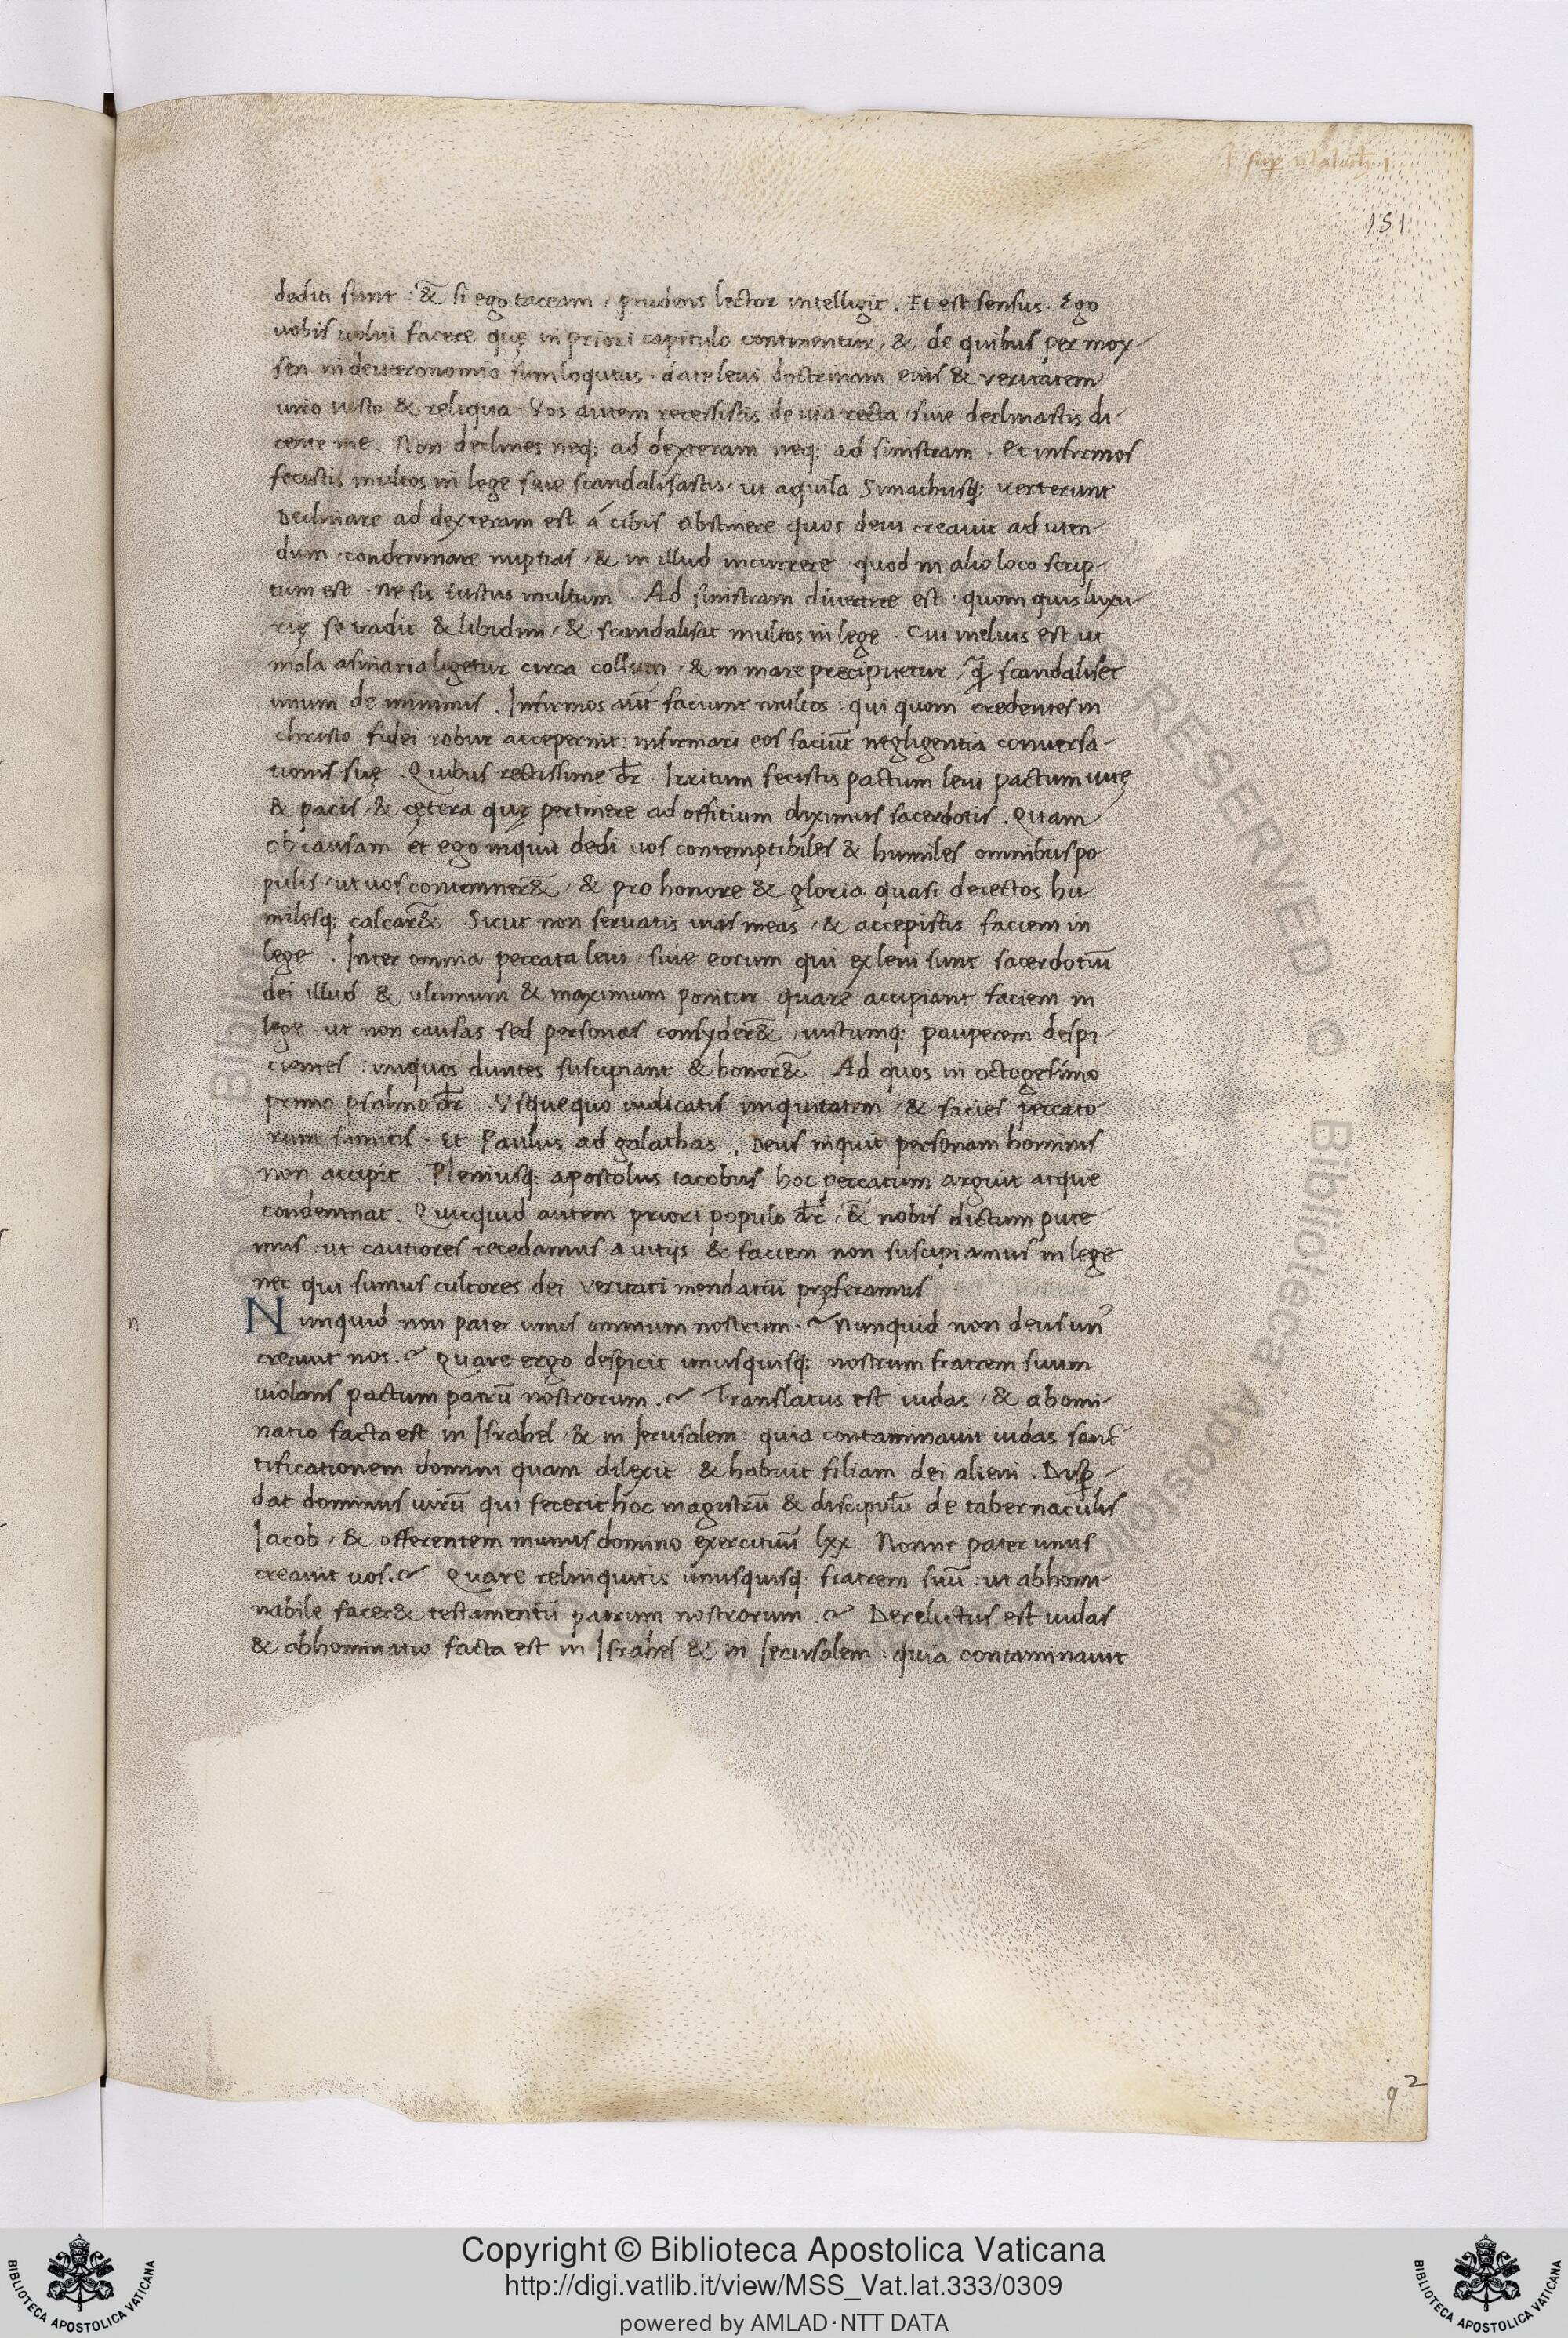 I. sup Malach. 1
151
dediti sunt : &̄ si ego taceam / prudens lector intelligit . Et est sensus . Ego
uobis uolui facere quę in priori capitulo continentur , & de quibus per moy-
sen in deuteronomio sum loqutus . date leui doctrinam eius & veritatem
uiro iusto & reliqua . Vos autem recessistis de uia recta / siue declinastis di-
cente me . Non declines neq; ad dexteram neq; ad sinistram . Et infirmos
fecistis multos in lege siue scandalisastis / ut aquila Simachusq; uerterunt
Declinare ad dexteram est á cibis abstinere quos deus creauit ad uten-
dum / condemnare nuptias / & in illud incurrere quod in alio loco scrip-
tum est . Ne sis iustus multum . Ad sinistram diuertere est : quom quis luxu-
rię se tradit & libidini / & scandalisat multos in lege . Cui melius est ut
mola asinaria ligetur circa collum / & in mare precipitetur / q̄ scandaliset
unum de minimis . Infirmos aūt faciunt multos : qui quom credentes in
christo fidei robur acceperint : infirmari eos faciūt negligentia conuersa-
tionis suę . Quibus rectissime dr̄ . Irritum fecistis pactum leui pactum uitę
& pacis / & cętera quę pertinere ad offitium diximus sacerdotis . Quam
ob causam et ego inquit dedi uos contemptibiles & humiles omnibus po
pulis / ut uos contemner&̄ / & pro honore & gloria quasi deiectos hu
milesq; calcar&̄ Sicut non seruatis uias meas / & accepistis faciem in
lege . Inter omnia peccata leui siue eorum qui ex leui sunt sacerdotiū
dei illud & ultimum & maximum ponitur quare accipiant faciem in
lege ut non causas sed personas consyder&̄ , iustumq; pauperem despi-
cientes : iniquos diuites suscipiant & honor&̄ . Ad quos in octogesimo
primo psalmo dr̄ . Vsquequo iudicatis iniquitatem / & facies peccato
rum sumitis . Et Paulus ad galathas . Deus inquit personam hominis
non accipit . Pleniusq; apostolus iacobus hoc peccatum arguit atque
condemnat . Quicquid autem priori populo dr̄ , &̄ nobis dictum pute
mus : ut cautiores recedamus a uitijs & faciem non suscipiamus in lege
nec qui sumus cultores dei veritati mendatiū pręferamus
n
Nunquid non pater unus omnium nostrum . Nunquid non deus un'
creauit nos . Quare ergo despicit unusquisq; nostrum fratrem suum
uiolans pactum patrū nostrorum . Translatus est iudas / & abomi-
natio facta est in Israhel / & in Ierusalem : quia contaminauit iudas sanc-
tificationem domini quam dilexit / & habuit filiam dei alieni . Disp̱-
dat dominus uirū qui fecerit hoc magistrū & discipulū de tabernaculis
Iacob / & offerentem munus domino exercituū lxx Nonne pater unus
creauit uos . Quare relinquitis unusquisq; fratrem suū : ut abhomi-
nabile facer& testamentū patrum nostrorum . Derelictus est iudas
& abhominatio facta est in Israhel & in Ierusalem : quia contaminauit
q 2
Copyright © Biblioteca Apostolica Vaticana
http://digi.vatlib.it/view/MSS_Vat.lat.333/0309
powered by AMLAD·NTT DATA
BIBLIOTECA APOSTOLICA VATICANA
BIBLIOTECA APOSTOLICA VATICANA